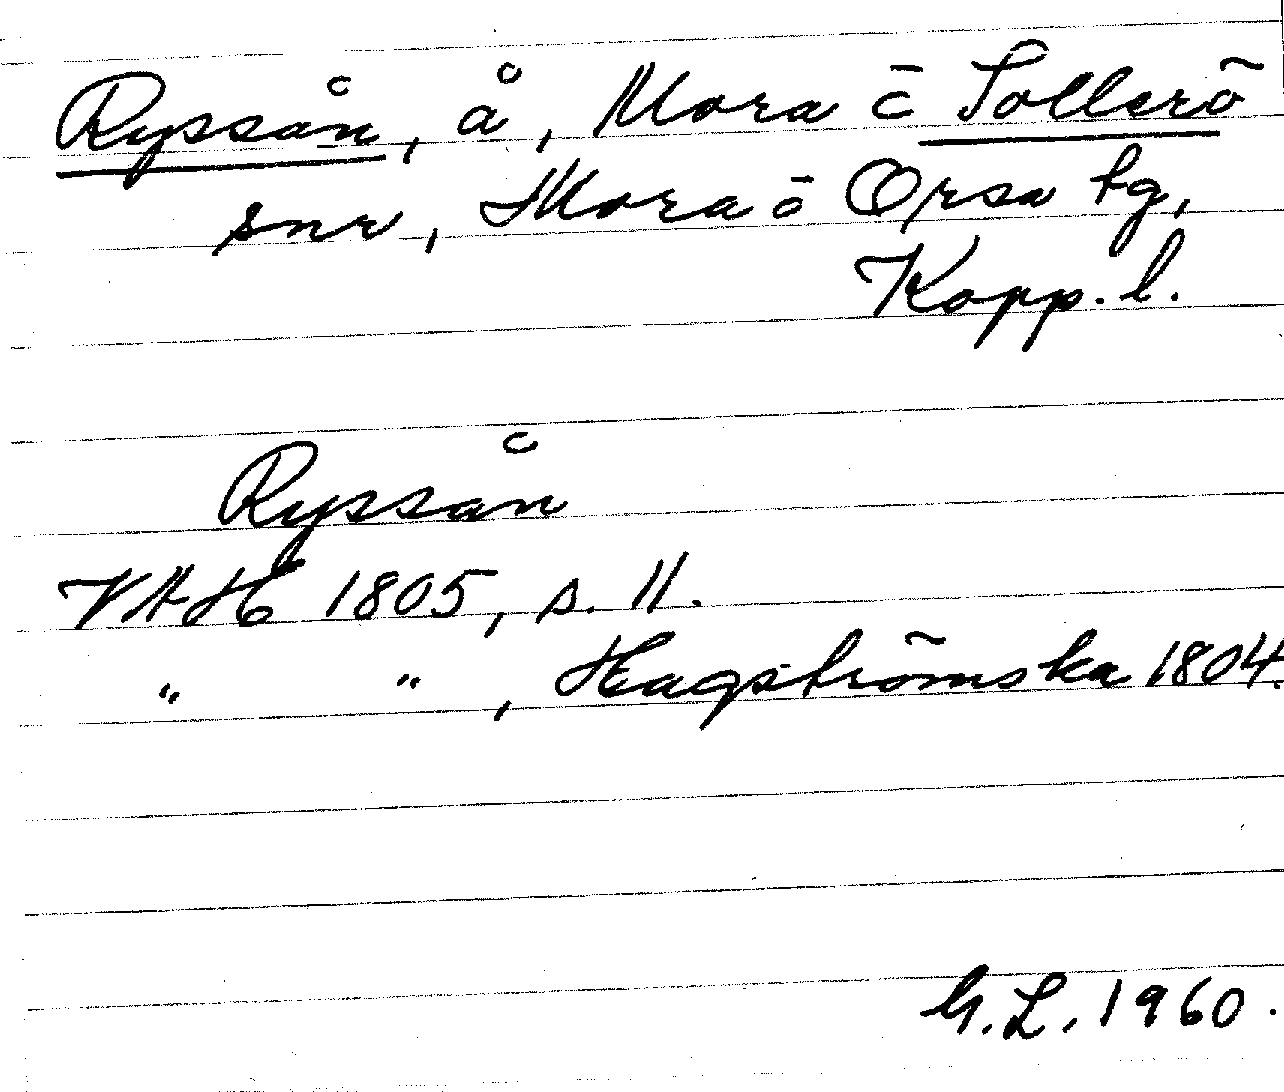 Ryssån, å, Mora o Sollerö
snr, Mora o Orsa tg,
Kopp. l.
Ryssån
VAH 1805, s. 11.
" ", Hagströmska 1804.
G.L. 1960.